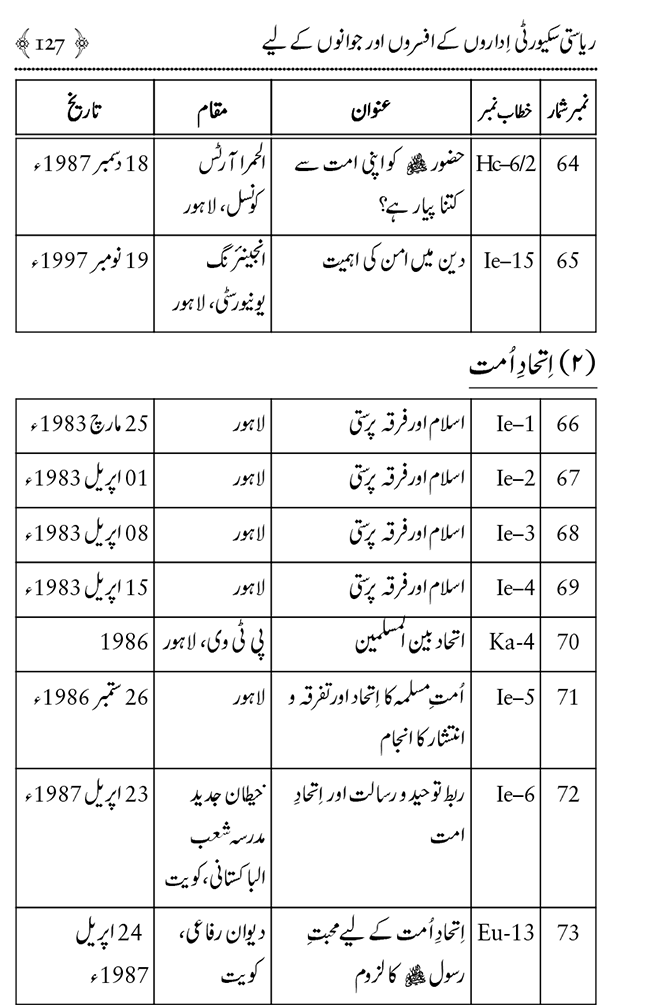 ریاستی سکیورٹی اِداروں کے افسروں اور جوانوں کے لیے ﴿127﴾
نمبر شمار خطاب نمبر عنوان مقام تاریخ
64 Hc–6/2 حضور ﷺ کو اپنی امت سے الحمرا آرٹس 18 دسمبر 1987ء
کتنا پیار ہے؟ کونسل، لاہور
65 Ie–15 دین میں امن کی اہمیت انجینئرنگ 19 نومبر 1997ء
یونیورسٹی، لاہور
(٢) اِتحادِ اُمت
66 Ie–1 اسلام اور فرقہ پرستی لاہور 25 مارچ 1983ء
67 Ie–2 اسلام اور فرقہ پرستی لاہور 01 اپریل 1983ء
68 Ie–3 اسلام اور فرقہ پرستی لاہور 08 اپریل 1983ء
69 Ie–4 اسلام اور فرقہ پرستی لاہور 15 اپریل 1983ء
70 Ka-4 اتحاد بین المسلمین پی ٹی وی، لاہور 1986
71 Ie–5 اُمتِ مسلمہ کا اِتحاد اور تفرقہ و لاہور 26 ستمبر 1986ء
انتشار کا انجام
72 Ie–6 ربط توحید و رسالت اور اِتحادِ خیطان جدید 23 اپریل 1987ء
امت مدرسہ شعب
الباکستانی، کویت
73 Eu-13 اِتحادِ اُمت کے لیے محبتِ دیوان رفاعی، 24 اپریل
رسول ﷺ کا لزوم کویت 1987ء